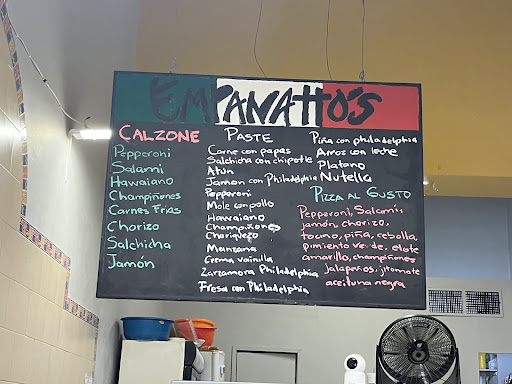 EMPANATTO'S
CALZONE
Pepperoni
Salami
Hawaiano
Champiñones
Carnes Frias
Chorizo
Salchicha
Jamón
PASTE
Carne con papas
Salchicha con chipotle
Atún
Jamon con Philadelphia
Pepperoni
Mole con pollo
Hawaiano
Champiñones
Choriqueso
Manzana
Crema vainilla
Zarzamora Philadelphia
Fresa con Philadelphia
Piña con philadelphia
Arroz con leche
Platano
Nutella
PIZZA AL GUSTO
Pepperoni, Salami,
jamón, chorizo,
tocino, piña, cebolla,
pimiento verde, elote
amarillo, champiñones
Jalapeños, jitomate
aceituna negra